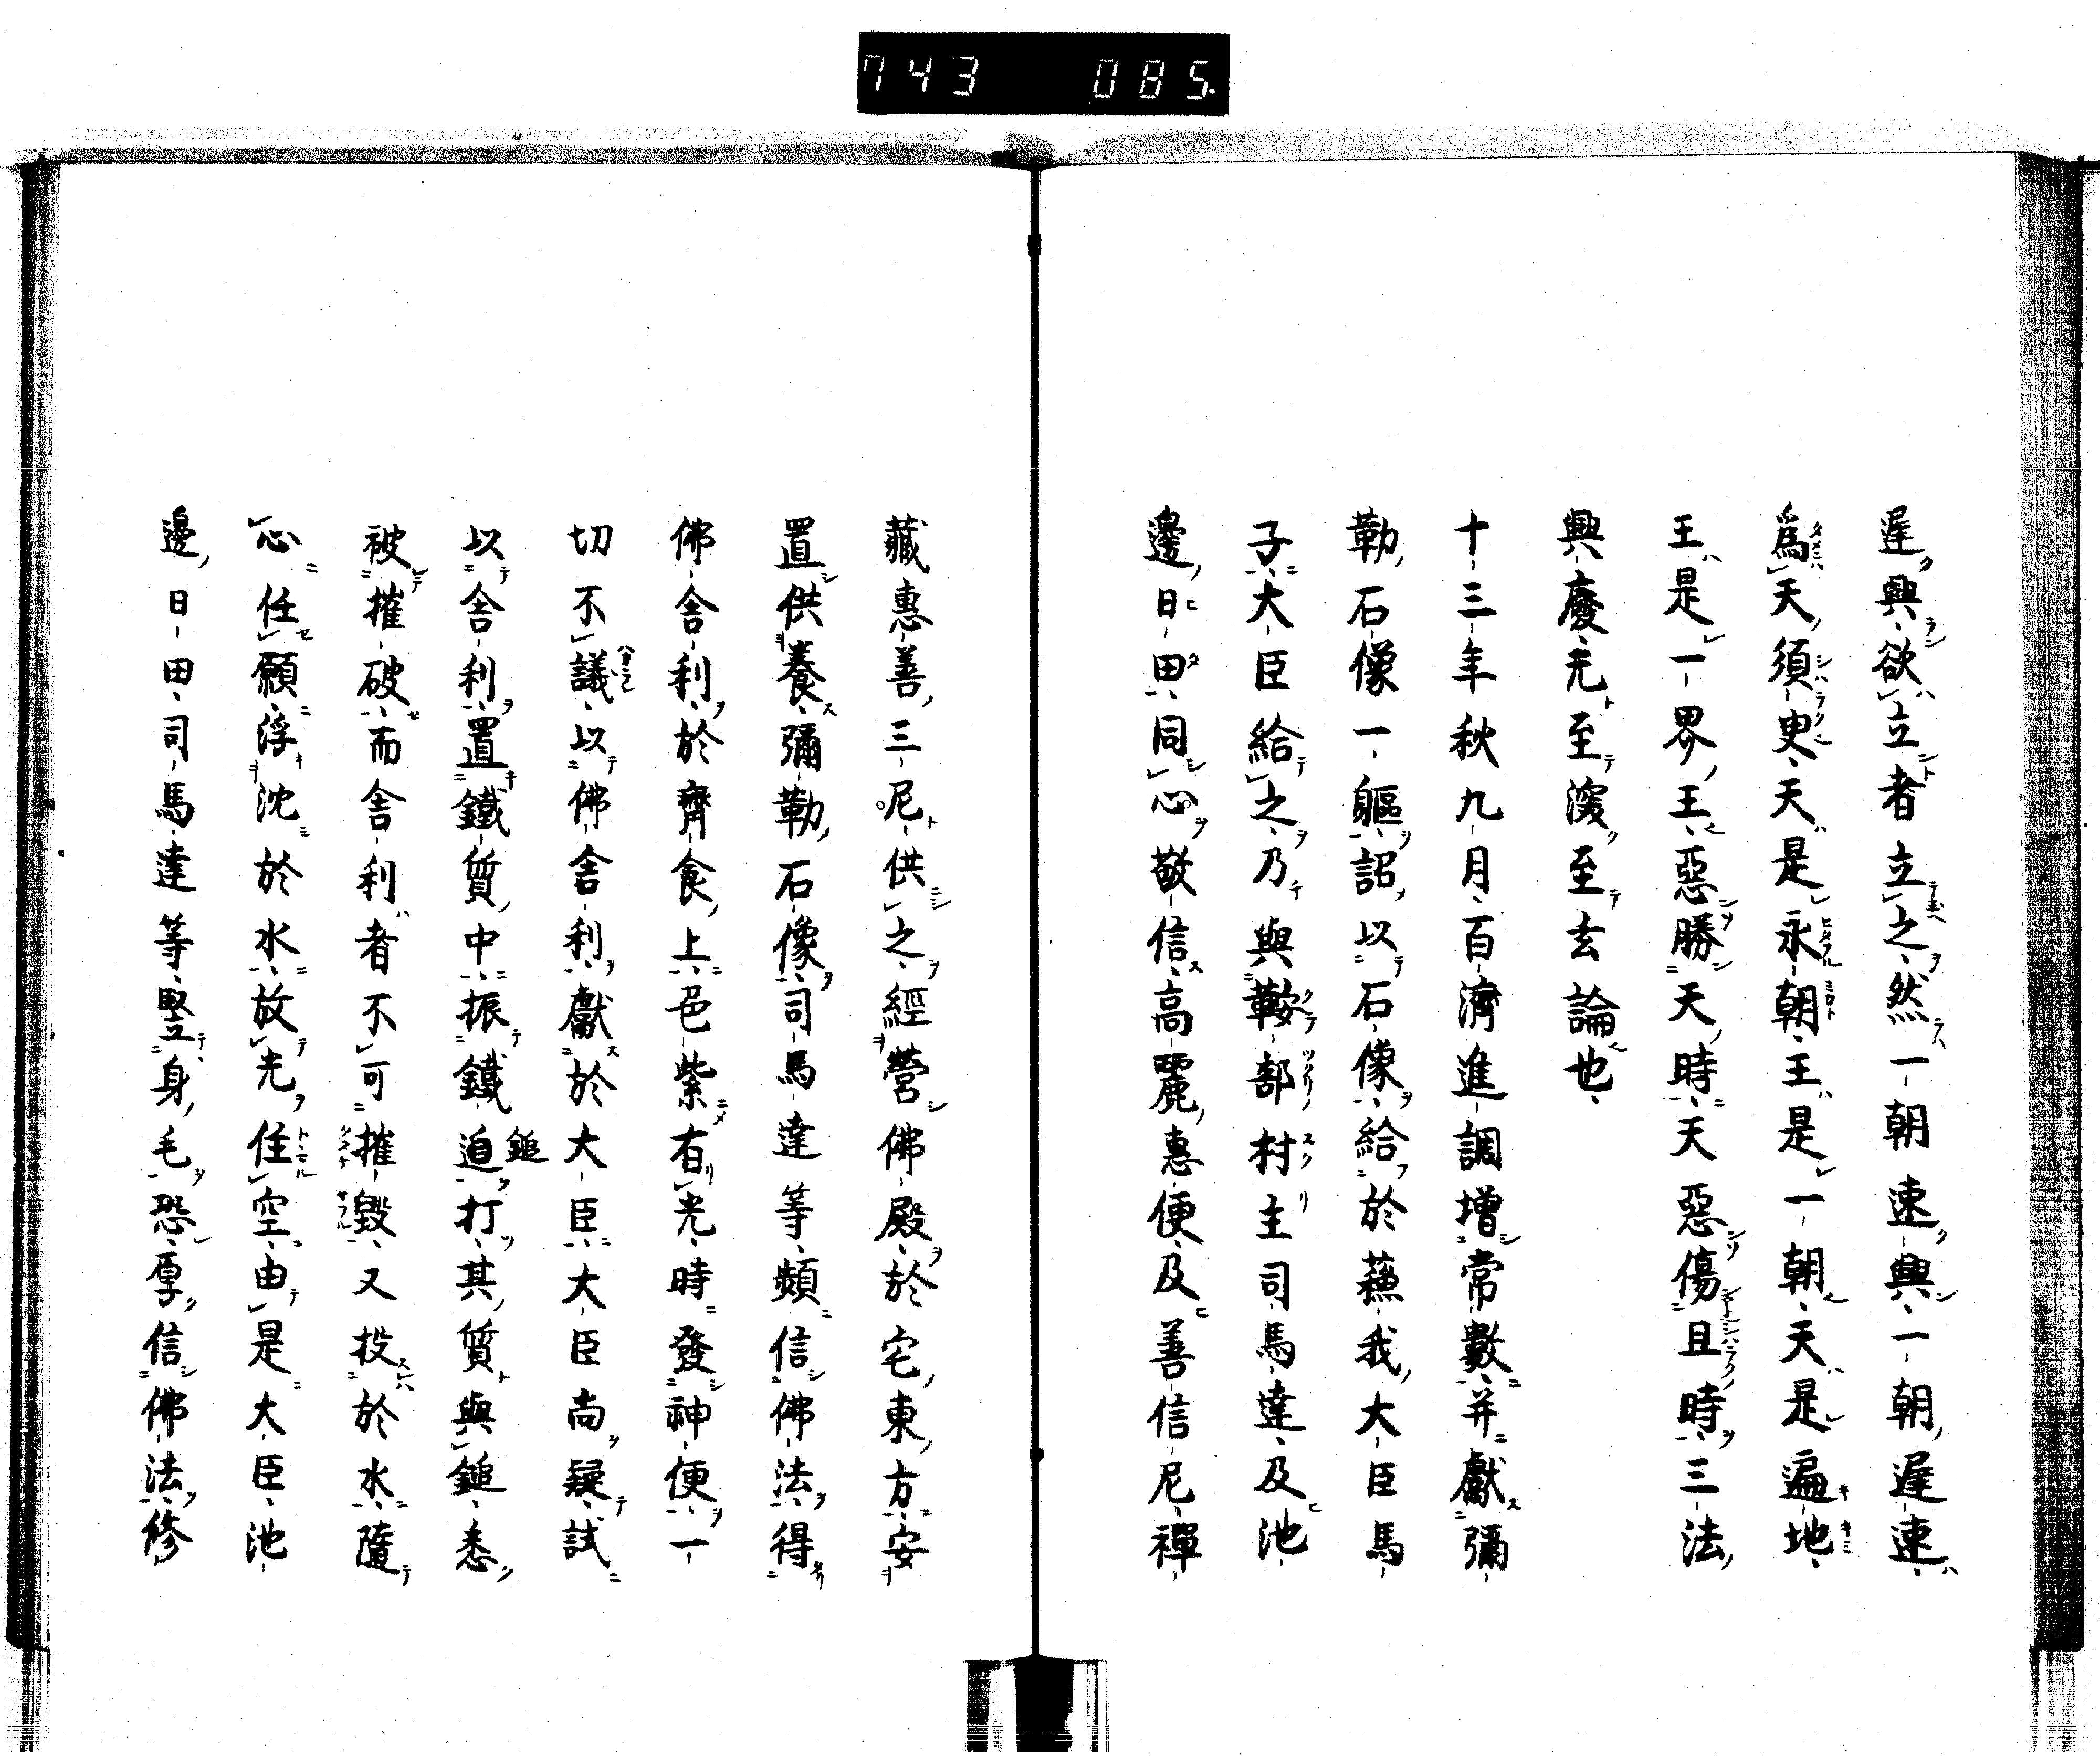 743 085
遅興欲立者立之然一朝速興一朝遅速
爲天須史天是永朝王是一朝天是遍地
王是一界王惡勝天時天惡傷且時三法
興廢元至深至玄論也
十三年秋九月百濟進調增常數并獻彌
勒石像一軀詔以石像給於蘓我大臣馬
子大臣給之乃與鞍部村主司馬達及池
邊日田同心敬信高麗惠便及善信尼禪
藏惠善三尼供之經營佛殿於宅東方安
置供養彌勒石像司馬達等頻信佛法得
佛舎利於齊食上色紫有光時發神便一
切不議以佛舎利獻於大臣大臣尚疑試
以舎利置鐵質中振鐵鎚追打其質與鎚悉
被摧破而舎利者不可摧毀又投於水隨
心任願浮沈於水放光住空由是大臣池
邊日田司馬達等竪身毛恐厚信佛法修